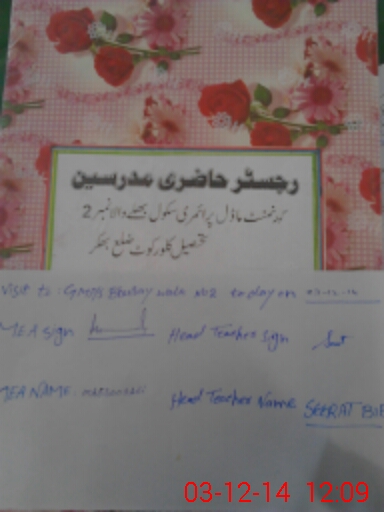 رجسٹر حاضری مدرسین
گورنمنٹ ماڈل پرائمری سکول بھٹے والا نمبر 2
تحصیل کلورکوٹ ضلع بھکر
Visit to: GMPS wala No2 today on 03-12-14
MEA Sign Head Teacher Sign
MEA NAME: Head Teacher Name SEERAT
03-12-14 12:09